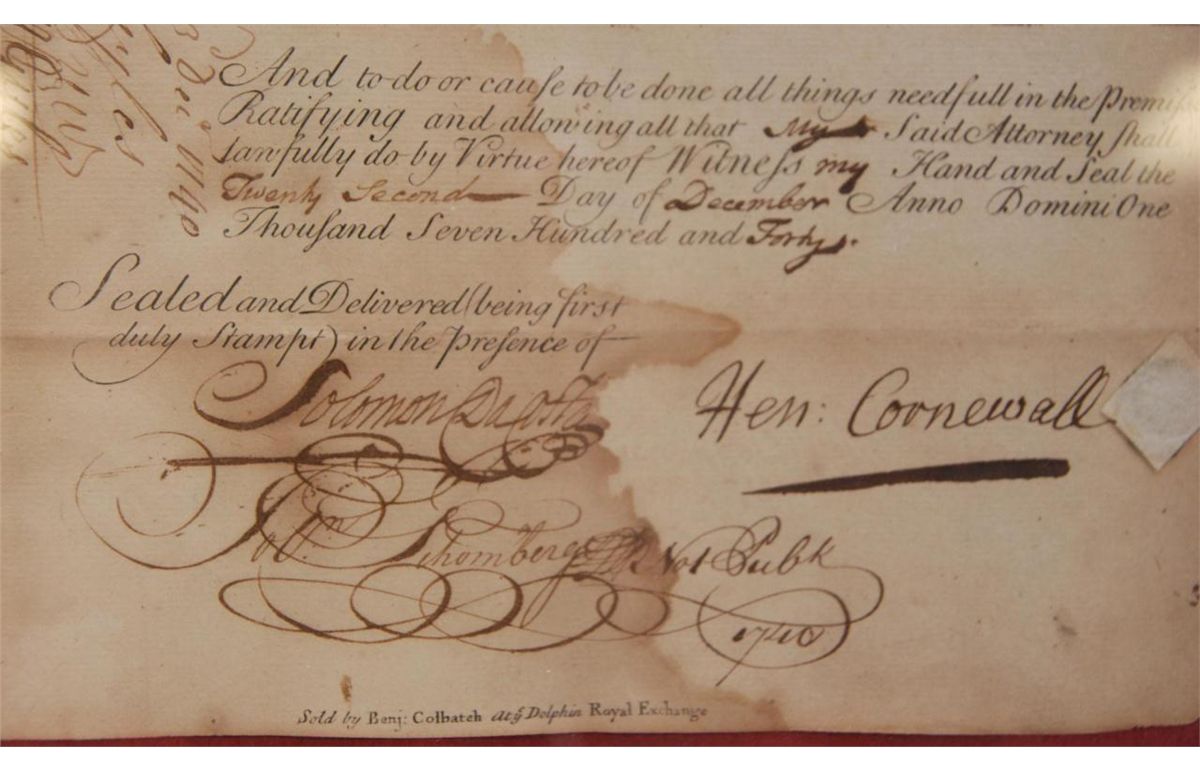 And to do or cause to be done all things needfull in the Premis
Ratifying and allowing all that My Said Attorney shall
lawfully do by Virtue hereof Witness my Hand and Seal the
Twenty Second Day of December Anno Domini One
Thousand Seven Hundred and Forty.
Sealed and Delivered (being first
duly Stampt) in the Presence of
Hen: Cornewall
Solomon
Sol:n Schomberg Not Publk
1740
Sold by Benj: Colbatch at ye Dolphin Royal Exchange